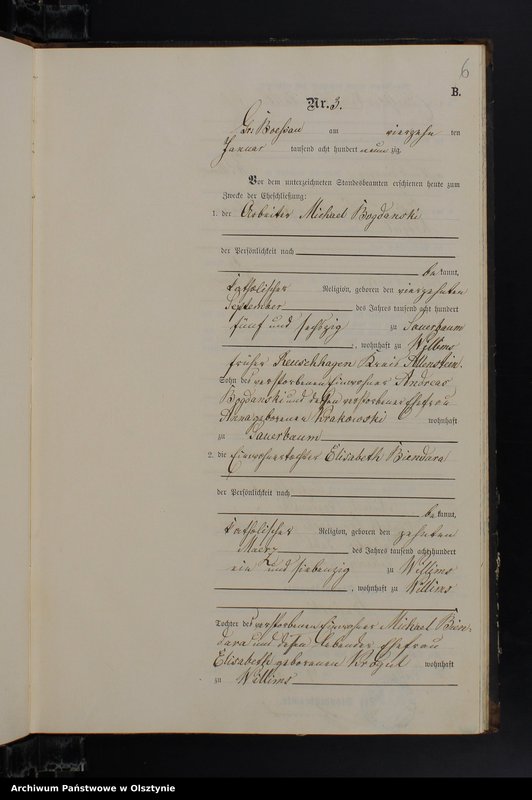 6
B.
Nr. 3.
Gr. Boessau am vierzehn ten
Januar tausend acht hundert neun zig.
Vor dem unterzeichneten Standesbeamten erschienen heute zum
Zwecke der Eheschließung:
1. der Arbeiter Michael Bogdanski
der Persönlichkeit nach
be kannt,
katholischer Religion, geboren den vierzehnten
September des Jahres tausend acht hundert
fünf und sechzig zu Sauerbaum
, wohnhaft zu Willims
früher Reuschhagen Kreis Allenstein.
Sohn des verstorbenen Einwohner Andreas
Bogdanski und dessen verstorbener Ehefrau
Anna geborenen Krakowski wohnhaft
zu Sauerbaum
2. die Einwohnertochter Elisabeth Biendara
der Persönlichkeit nach
be kannt,
katholischer Religion, geboren den zehnten
Maerz des Jahres tausend acht hundert
ein und siebenzig zu Willims
, wohnhaft zu Willims
Tochter des verstorbenen Einwohner Michael Bien-
dara und dessen lebender Ehefrau
Elisabeth geborenen wohnhaft
zu Willims
Archiwum Państwowe w Olsztynie